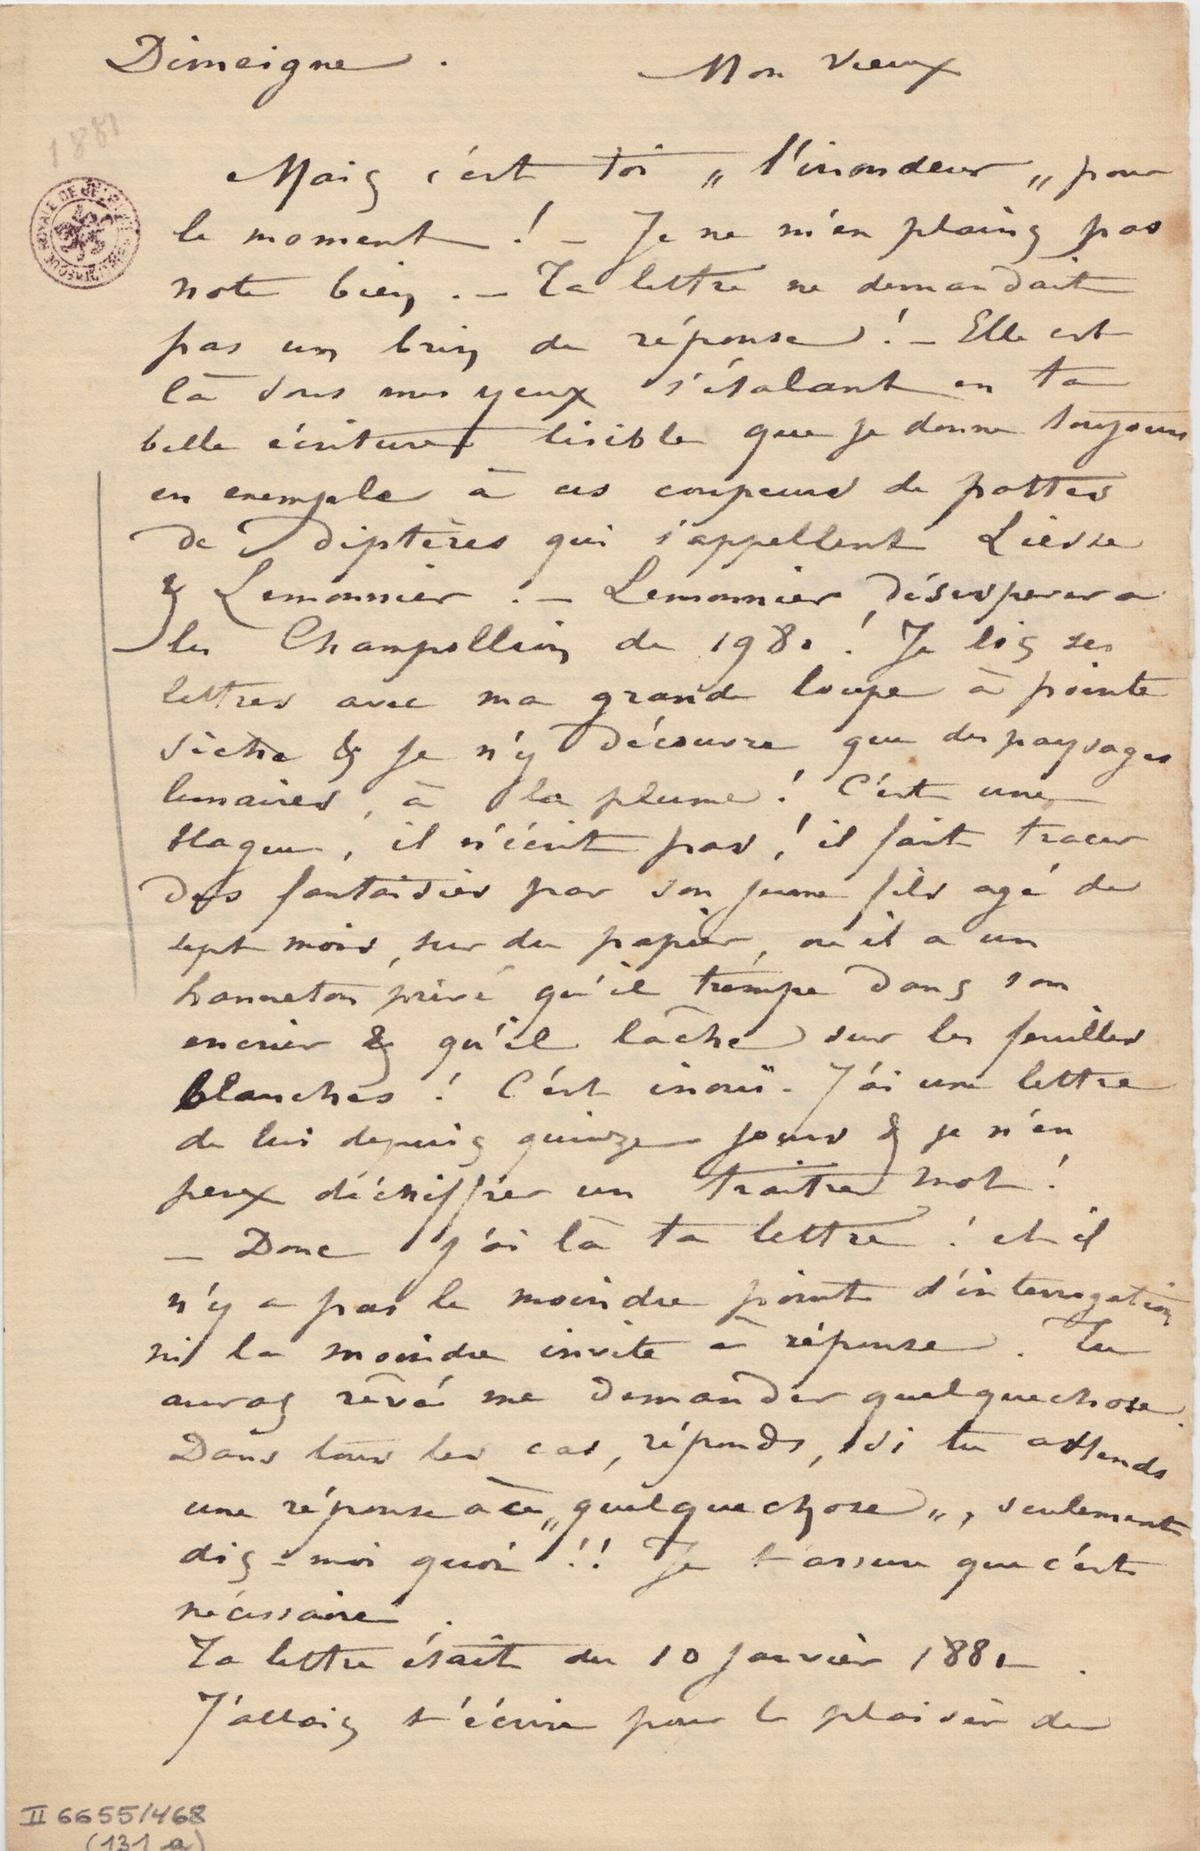 Dimeigne .
Mon Vieux
1881
Mais c'est toi „ l'inondeur „ pour
le moment ! – Je ne m'en plains pas
note bien . – Ta lettre ne demandait
pas un brin de réponse ! – Elle est
là sous mes yeux s'étalant en ta
belle écriture lisible que je donne toujours
en exemple à ces coupeurs de pattes
de diptères qui s'appellent Liesse
& Lemonnier . – Lemonnier désespèrera
les Champollion de 1981 ! Je lis ses
lettres avec ma grande loupe à pointe
sèche & je n'y découvre que des paysages
lunaires, à la plume ! C'est une
blague, il n'écrit pas, ! il fait tracer
des fantaisies par son jeune fils agé de
sept mois, sur du papier, ou il a un
hanneton privé qu'il trempe dans son
encrier & qu'il lâche sur les feuilles
blanches ! C'est inouï - J'ai une lettre
de lui depuis quinze jours & je n'en
peux déchiffrer un traitre mot !
– Donc j'ai là ta lettre ! et il
n'y a pas le moindre point d'interrogation
ni la moindre invite à réponse . Tu
auras rêvé me demander quelquechose.
Dans tous les cas, réponds, si tu attends
une réponse à ce „ quelquechose „, seulement
dis-moi quoi !! Je t'assure que c'est
nécessaire .
Ta lettre était du 10 Janvier 1881 .
J'allais t'écrire pour le plaisir de
II 6655/468
(131 a)